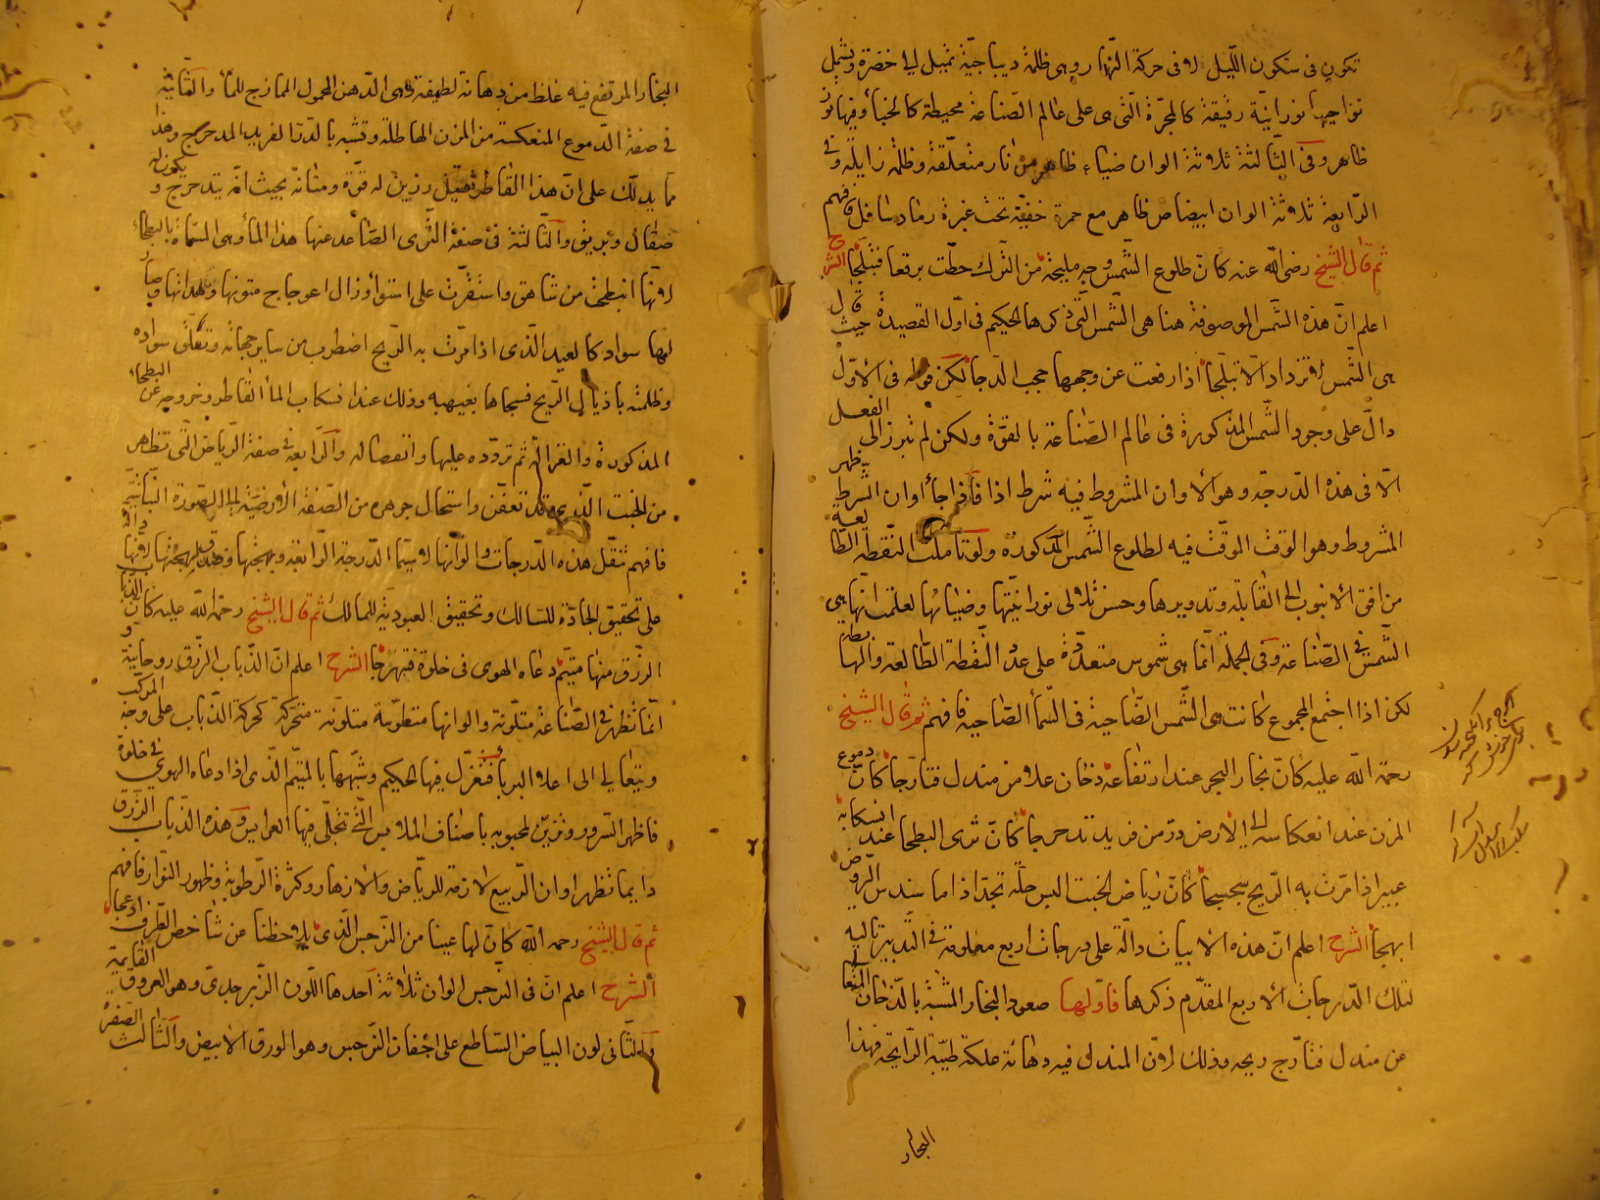 تكون فى سكون الليل لا فى حركة النهار وهى ظلمة ديباجيّة تميل الى خضرة ويشمل
نواحيها نورانيّة رقيقة كالمجرّة الّتى هى على عالم الصّناعة محيطة كالخباء وفيها نور
ظاهر وفى الثّالثة ثلاثة الوان ضياء ظاهر من نار متعلّقة وظلمة زايلة وفى
الرّابعة ثلاثة الوان ابيضاض ظاهر مع حمرة خفيّة تحت غبرة رماد سافل فافهم
ثم قال الشيخ رضى الله عنه كانّ طلوع الشّمس وجه مليحة من الترك حطّت برقعا فتبلّجا الشرح
اعلم انّ هذه الشّمس الموصوفة هنا هى الشّمس الّتى ذكرها الحكيم فى اوّل القصيدة حيث قال
هى الشّمس لا تزداد الّا تبلّجا اذا رفعت عن وجهها حجب الدّجا لكن قوله فى الاوّل
دالّ على وجود الشّمس المذكورة فى عالم الصّناعة بالقوّة ولكن لم تبرز الى الفعل
الّا فى هذه الدّرجة وهو الاوان المشروط فيه شرط اذا فاذا جاء اوان الشّرط ظهر
المشروط وهو الوقت الموقّت فيه لطلوع الشّمس المذكورة ولو تأمّلت النّقطة الطّالعة
من افق الانبوب الى القابلة وتدويرها وحسن تلألى نورانيّتها وضيائها لعلمت انّها هى
الشّمس فى الصّناعة وفى الجملة انّما هى شموس متعدّدة على عدد النّقطة الطّالعة والهابطة
لكن اذا اجتمع المجموع كانت هى الشّمس الضّاحية فى السّماء الصّاحية فافهم ثم قال الشيخ
رحمة الله عليه كانّ بخار البحر عند ارتفاعه دخان علا من مندل فتأرّجا كانّ دموع
المزن عند انعكاسه الى الارض درّ من فريد تدحرجا كانّ ثرى البطحا عند انسكابه
عبير اذا مرّت به الرّيح سجسجا كانّ رياض الخبت البس حلّة تجدّ اذا ما سندس الرّوض
ابهجا الشرح اعلم انّ هذه الابيات دالّة على درجات اربع معلومة فى التّدبير تالية
لتلك الدّرجات الاربع المقدّم ذكرها فاوّلها صعود البخار المشبّه بالدّخان المتعالى
عن مندل فتأرّج ريحه وذلك لانّ المندل فيه دهانة علكة طيّبة الرّايحة فهذا
البخار
البخار المرتفع فيه غلظ من دهانة لطيفة وهى الدّهن المحمول الممازج للماء والثّانية
فى صفة الدّموع المنعكسة من المزن الهاطلة وتشبه بالدّرّ الفريد المدحرج وهذا
ممّا يدلّك على انّ هذا القاطر ثقيل رزين له قوّة ومتانة بحيث انّه يتدحرج ويكون له
صقال وبريق والثّالثة فى صفة الثّرى الصّاعد عنها هذا الماء وهى المسمّاة بالبطحاء
لانّها انبطحت من شاهق واستقرّت على استواء وزال اعوجاج متونها وهدابها وصار
لها سواد كالعبير الّذى اذا مرّت به الرّيح اضطرب من ساير جهاته وتعلّق سواده
وظلمته باذيال الرّيح فسجاها بغيهبه وذلك عند انسكاب الماء القاطر وخروجه عن البطحاء
المذكورة والغزالة ثم تردّده عليها وانفصاله والرّابعة فى صفة الرّياض الّتى تظهر
من الخبت الّذى قد تعفّن واستحال جوهره من الصّفة الارضيّة الى الصّورة النّباتيّة
فافهم تنقّل هذه الدّرجات والوانها لا سيّما الدّرجة الرّابعة وبهجتها لانّها دالّة
على تحقيق الجادّة للسّالك وتحقيق العبوديّة للمالك ثم قال الشيخ رحمة الله عليه كانّ الذّباب
الزّرق منها متيّم دعاه الهوى فى خلوة فتهزّجا الشرح اعلم انّ الذّباب الزّرق روحانية
انّما تظهر فى الصّناعة متلوّنة والوانها متطوّسة متلوّنة متحرّكة كحركة الذّباب على وجه المركّب
ويتعالى الى اعلا البرباء فتغزّل فيها الحكيم وشبّهها بالمتيّم الّذى اذا دعاه الهوى فى خلوة
فاظهر السّرور وتزيّن لمحبوبه باصناف الملابس الّتى تتحلّى فيها العرايس وهذه الذّباب الزّرق
دايما تظهر اوان الرّبيع لازمة للرّياض والازهار وكثرة الرّطوبة وظهور النّوار فافهم
ثم قال الشيخ رحمه الله كانّ لها عينا من النّرجس الّذى يلاحظنا من شاخص الطّرف ادعجا
الشرح اعلم انّ فى النّرجس الوان ثلاثة احدها اللّون الزّبرجدىّ وهو العروق القايمة
والثّانى لون البياض السّاطع على اجفان النّرجس وهو الورق الابيض والثّالث الصّفرة